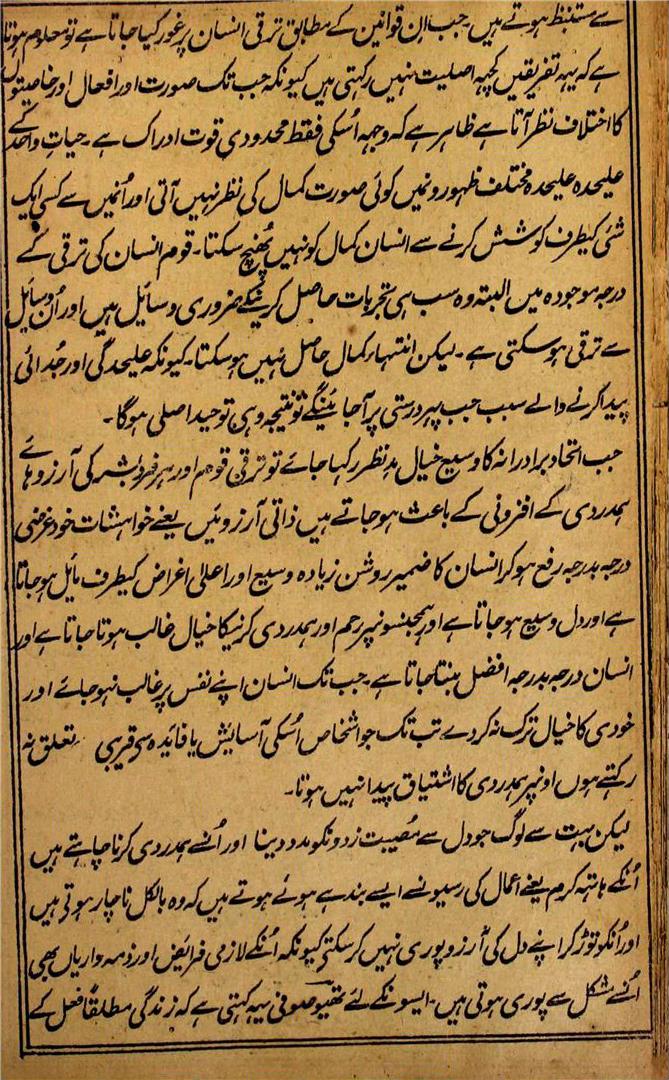 سے مستنبط ہوتے ہیں۔ جب ان قوانین کے مطابق ترقی انسان پر غور کیا جاتا ہے تو معلوم ہوتا
ہے کہ یہہ تفریقیں کچہہ اصلیت نہیں رکہتی ہیں کیونکہ جب تک صورت اور افعال اور خاصیتوں
کا اختلاف نظر آتا ہے ظاہر ہے کہ وجہہ اُسکی فقط محدودیِ قوت ادراک ہے۔ حیاتِ واحد کے
علیحدہ علیحدہ مختلف ظہورونمیں کوئی صورت کمال کی نظر نہیں آتی اور اُنمیں سے کسی ایک
شئی کیطرف کوشش کرنے سے انسان کمال کو نہیں پُہنچ سکتا۔ قوم انسان کی ترقی کے
درجہ موجودہ میں البتہ وہ سب ہی تجربات حاصل کرنیکے ضروری وسایل ہیں اور اُن وسایل
سے ترقی ہو سکتی ہے۔ لیکن انتہاء کمال حاصل نہیں ہو سکتا۔ کیونکہ علیحدگی اور جُدائی
پیدا کرنے والے سبب جب پہر درستی پر آجائینگے تو نتیجہ وہی توحید اصلی ہوگا۔
جب اتحاد برادرانہ کا وسیع خیال مدنظر رکہا جائے تو ترقی قوم اور ہر فرد بشر کی آرزوہائے
ہمدردی کے افزونی کے باعث ہو جاتے ہیں ذاتی آرزوئیں یعنے خواہشات خود غرضی
درجہ بدرجہ رفع ہو کر انسان کا ضمیر روشن زیادہ وسیع اور اعلیٰ اغراض کیطرف مایل ہو جاتا
ہے اور دل وسیع ہو جاتا ہے اور ہمجنسونپر رحم اور ہمدردی کرنیکا خیال غالب ہوتا جاتا ہے اور
انسان درجہ بدرجہ افضل بنتا جاتا ہے۔ جب تک انسان اپنے نفس پر غالب نہو جائے اور
خودی کا خیال ترک نہ کر دے تب تک جو اشخاص اُسکی آسایش یا فائدہ سے قریبی تعلق نہ
رکہتے ہوں اونپر ہمدردی کا اشتیاق پیدا نہیں ہوتا۔
لیکن بہت سے لوگ جو دل سے مصیبت زدونکو مدد دینا اور اُنسے ہمدردی کرنا چاہتے ہیں
اُنکے ہاتہہ کرم یعنے اعمال کی رسیونسے ایسے بندہے ہوئے ہوتے ہیں کہ وہ بالکل ناچار ہوتی ہیں
اور اُنکو توڑ کر اپنے دل کی آرزو پوری نہیں کر سکتی کیونکہ اُنکے لازمی فرائض اور ذمہ واریاں بھی
اُنسے مشکل سے پوری ہوتی ہیں۔ ایسونکے لئے تہیوصوفی یہہ کہتی ہے کہ زندگی مطلقاً فعل کے